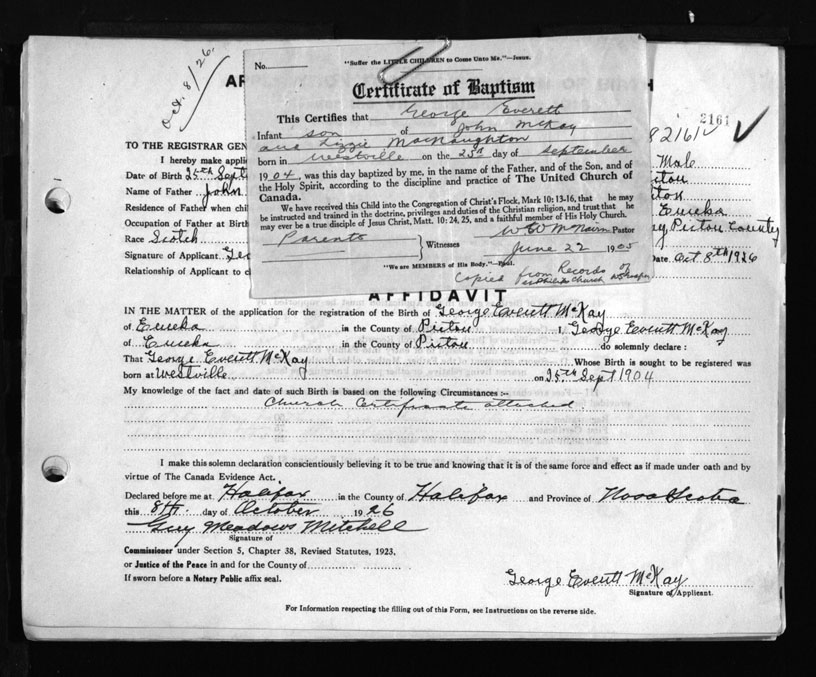 Oct. 8/26.
No.
"Suffer the LITTLE CHILDREN to Come Unto Me."—Jesus.
Certificate of Baptism
This Certifies that George Everett
Infant son of John McKay
and Lizzie MacNaughton
born in Westville on the 25th day of September
1904, was this day baptized by me, in the name of the Father, and of the Son, and of
the Holy Spirit, according to the discipline and practice of The United Church of
Canada.
We have received this Child into the Congregation of Christ's Flock, Mark 10: 13-16, that he may
be instructed and trained in the doctrine, privileges and duties of the Christian religion, and trust that he
may ever be a true disciple of Jesus Christ, Matt. 10: 24, 25, and a faithful member of His Holy Church.
Pastor
Parents
Witnesses
June 22 1905
"We are MEMBERS of His Body."—Paul.
Copied from Records of
Church
AP
H
2161
82161
TO THE REGISTRAR GEN
I hereby make appli
Male
Date of Birth 25th Sept
Pictou
Name of Father John
Residence of Father when chi
Eureka
Occupation of Father at Birth
Pictou County
Race Scotch
Signature of Applicant Geo
Date Oct 8th 1926
Relationship of Applicant to c
AFFIDAVIT
IN THE MATTER of the application for the registration of the Birth of George Everitt McKay
of Eureka in the County of Pictou I, George Everitt McKay
of Eureka in the County of Pictou do solemnly declare:
That George Everitt McKay Whose Birth is sought to be registered was
born at Westville on 25th Sept 1904
My knowledge of the fact and date of such Birth is based on the following Circumstances :-
Church Certificate attached
I make this solemn declaration conscientiously believing it to be true and knowing that it is of the same force and effect as if made under oath and by
virtue of The Canada Evidence Act.
Declared before me at Halifax in the County of Halifax and Province of Nova Scotia
this 8th day of October 1926
Guy Meadows Mitchell
Signature of
Commissioner under Section 5, Chapter 38, Revised Statutes, 1923.
or Justice of the Peace in and for the County of
If sworn before a Notary Public affix seal.
George Everitt McKay
Signature of Applicant.
For Information respecting the filling out of this Form, see Instructions on the reverse side.